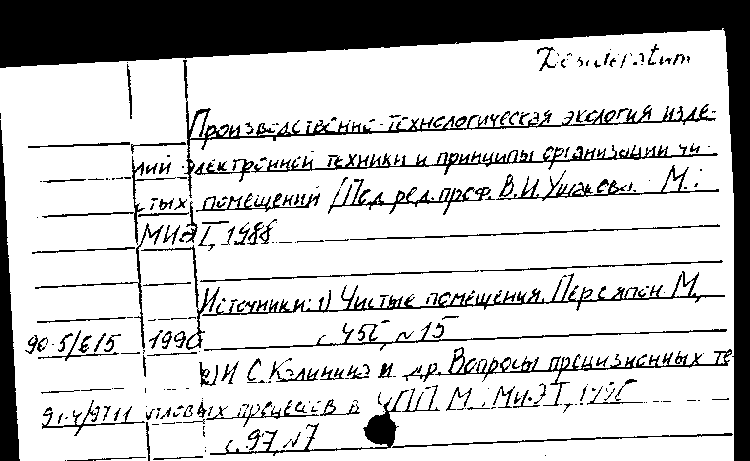 Desideratum
Производственно-технологическая экология изде-
лий электронной техники и принципы организации чи-
стых помещений / Под ред. проф. В.И. М.:
МИЭТ, 1988
Источники: 1) Чистые помещения. Пер с япон М.,
90-5/615 1990 с. 456, №15
2) И С. Калинина и др. Вопросы прецизионных те
91-4/9711 пловых процессов в ЧПП. М: МИЭТ, 1990
с. 97, №7